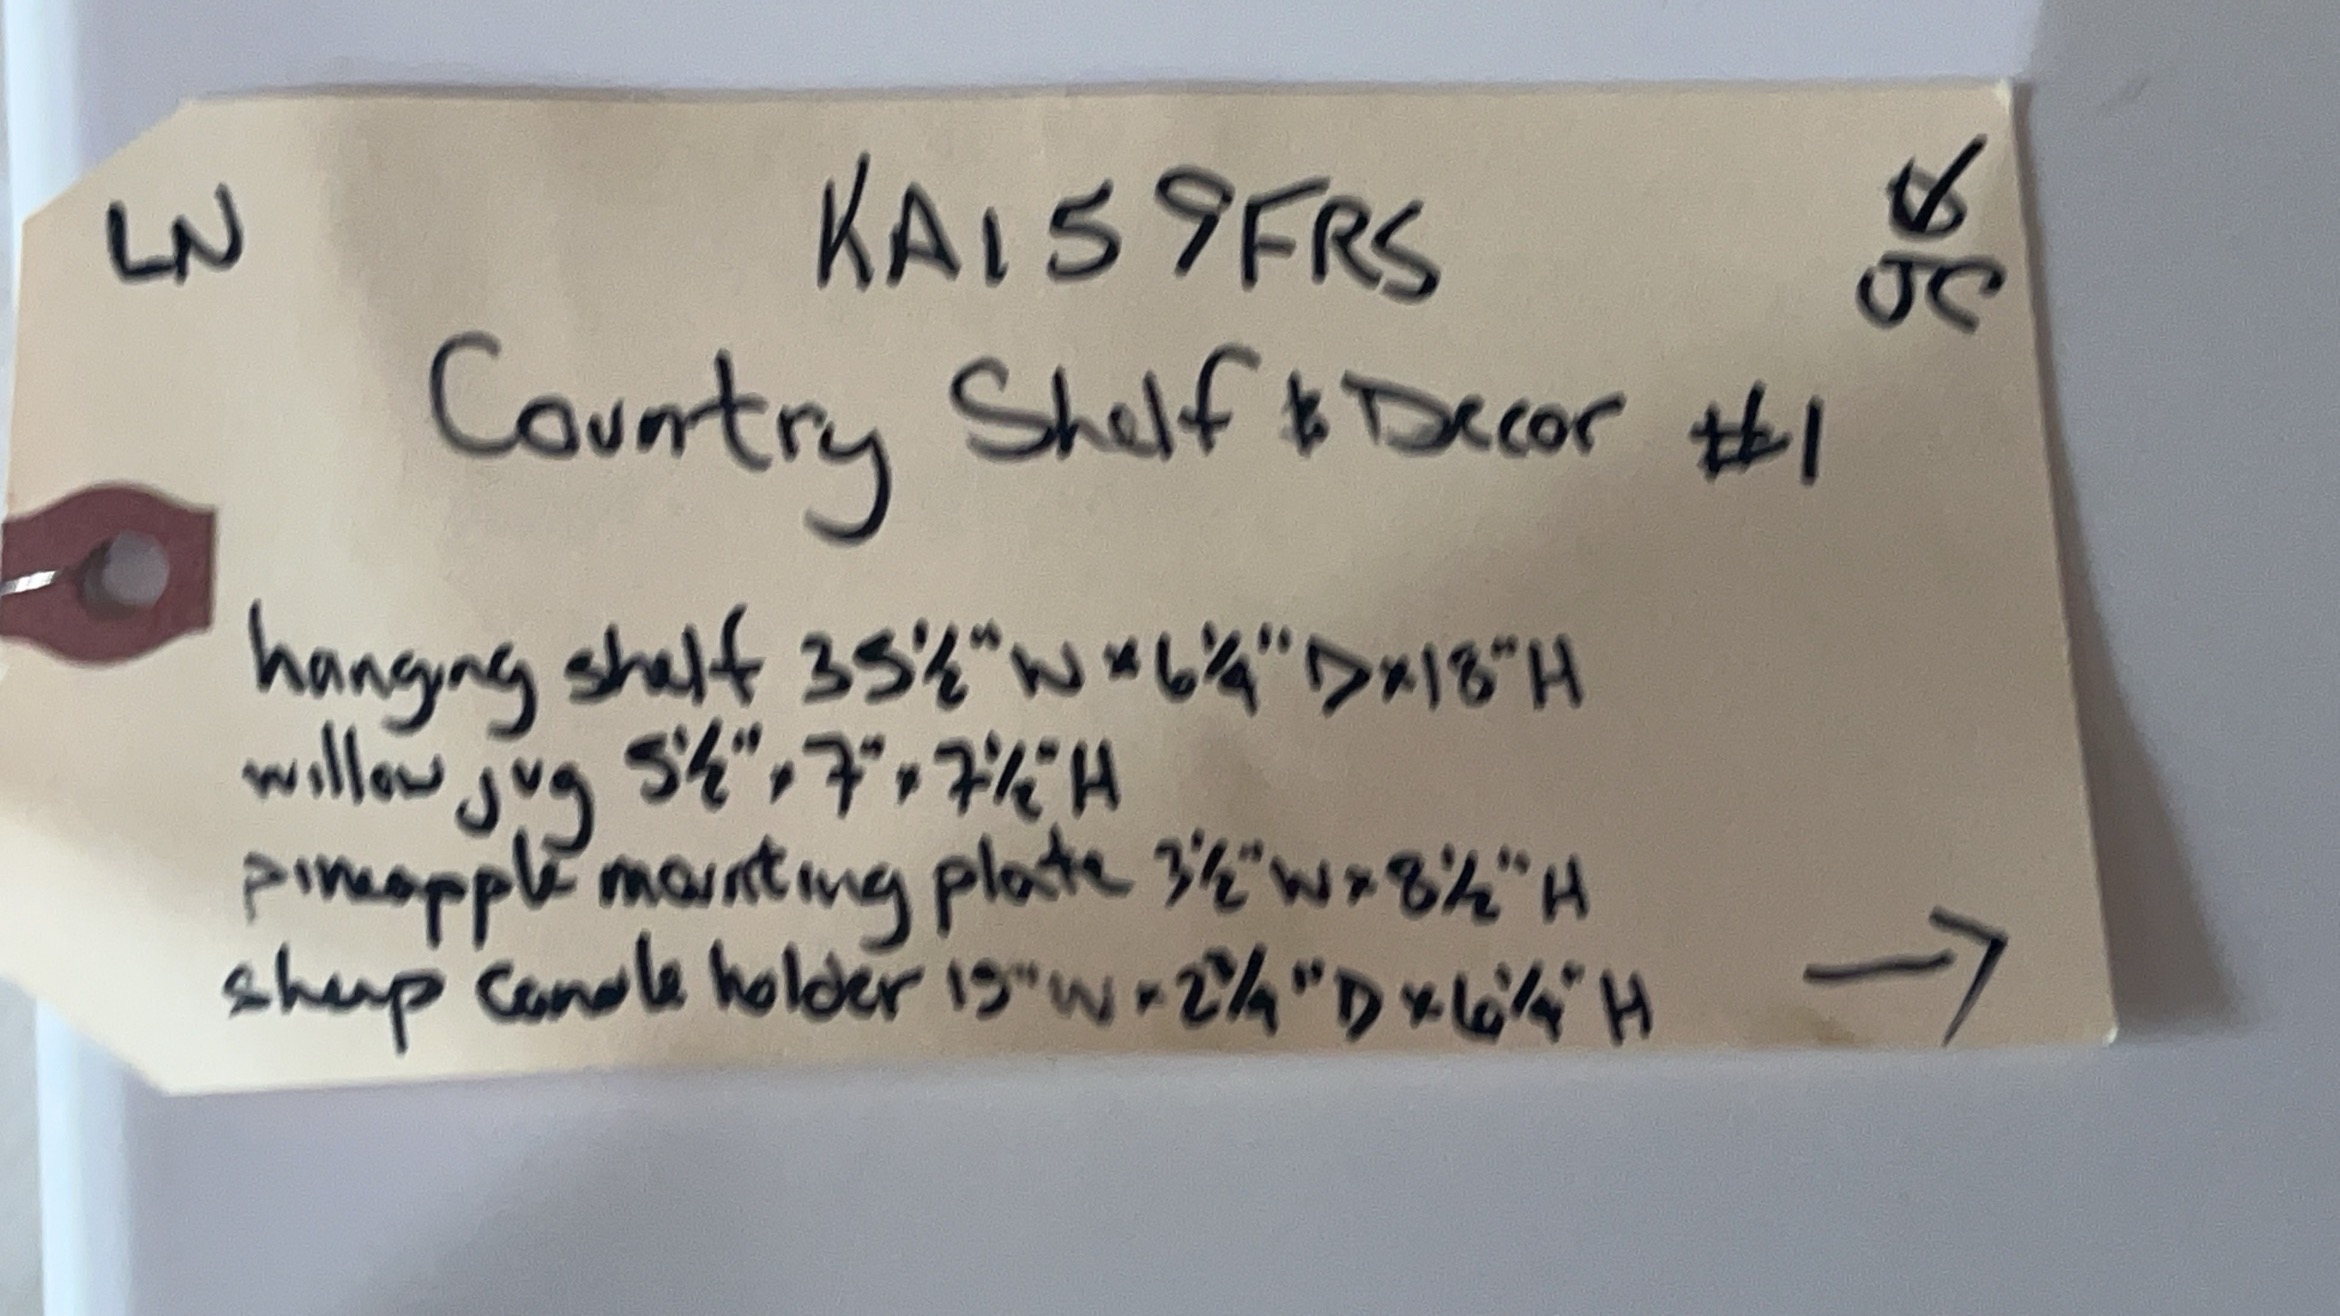 LN KA159FRS
JC
Country Shelf & Decor #1
hanging shelf 35½" W x 6¼" D x 18" H
willow jug 5½" x 7" x 7½" H
pineapple mounting plate 3½" W x 8½" H
sheep candle holder 15" W x 2¾" D x 6¼" H
→